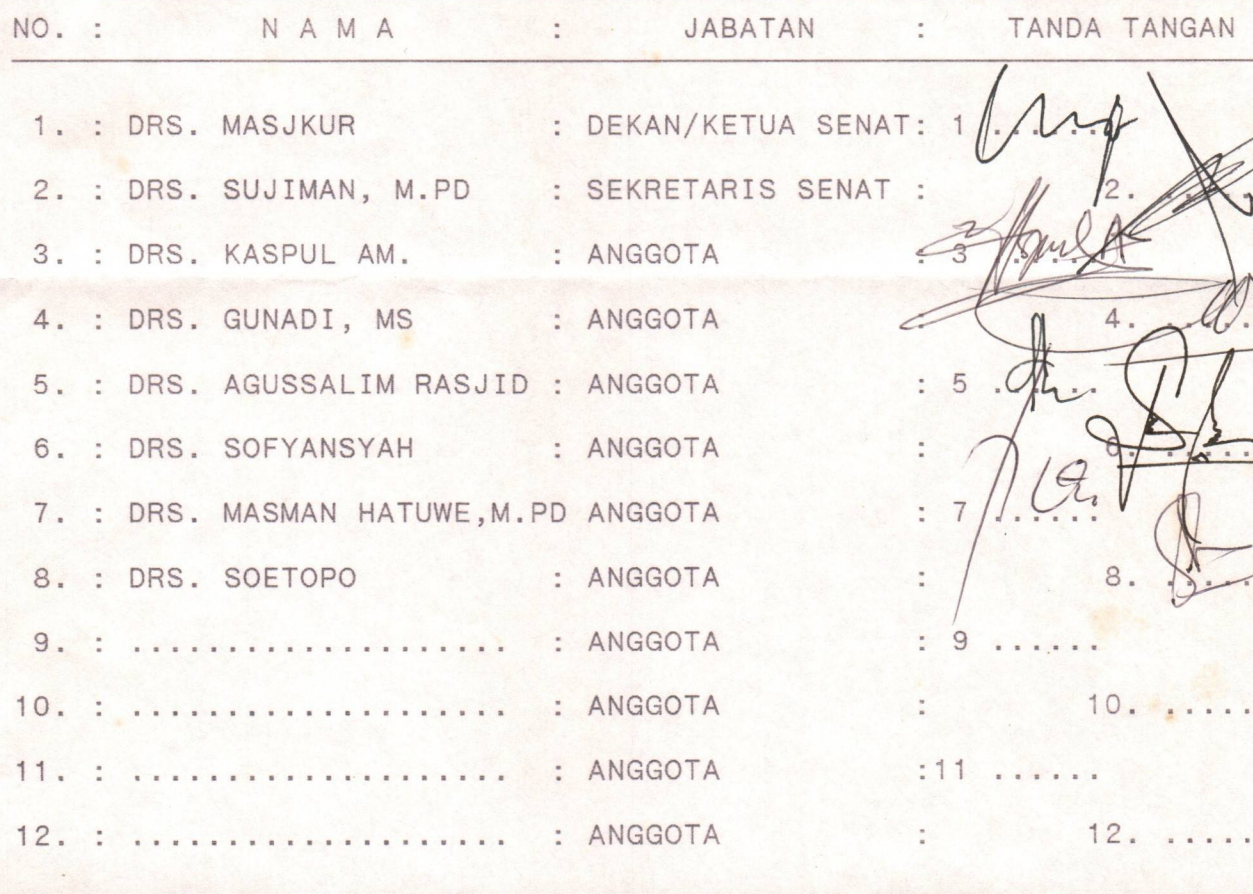 NO. : N A M A : JABATAN : TANDA TANGAN
1. : DRS. MASJKUR : DEKAN/KETUA SENAT: 1 ......
2. : DRS. SUJIMAN, M.PD : SEKRETARIS SENAT : 2. ......
3. : DRS. KASPUL AM. : ANGGOTA : 3 ......
4. : DRS. GUNADI, MS : ANGGOTA : 4. ......
5. : DRS. AGUSSALIM RASJID : ANGGOTA : 5 ......
6. : DRS. SOFYANSYAH : ANGGOTA : 6. ......
7. : DRS. MASMAN HATUWE,M.PD ANGGOTA : 7 ......
8. : DRS. SOETOPO : ANGGOTA : 8. ......
9. : .................... : ANGGOTA : 9 ......
10. : .................... : ANGGOTA : 10. ......
11. : .................... : ANGGOTA :11 ......
12. : .................... : ANGGOTA : 12. ......